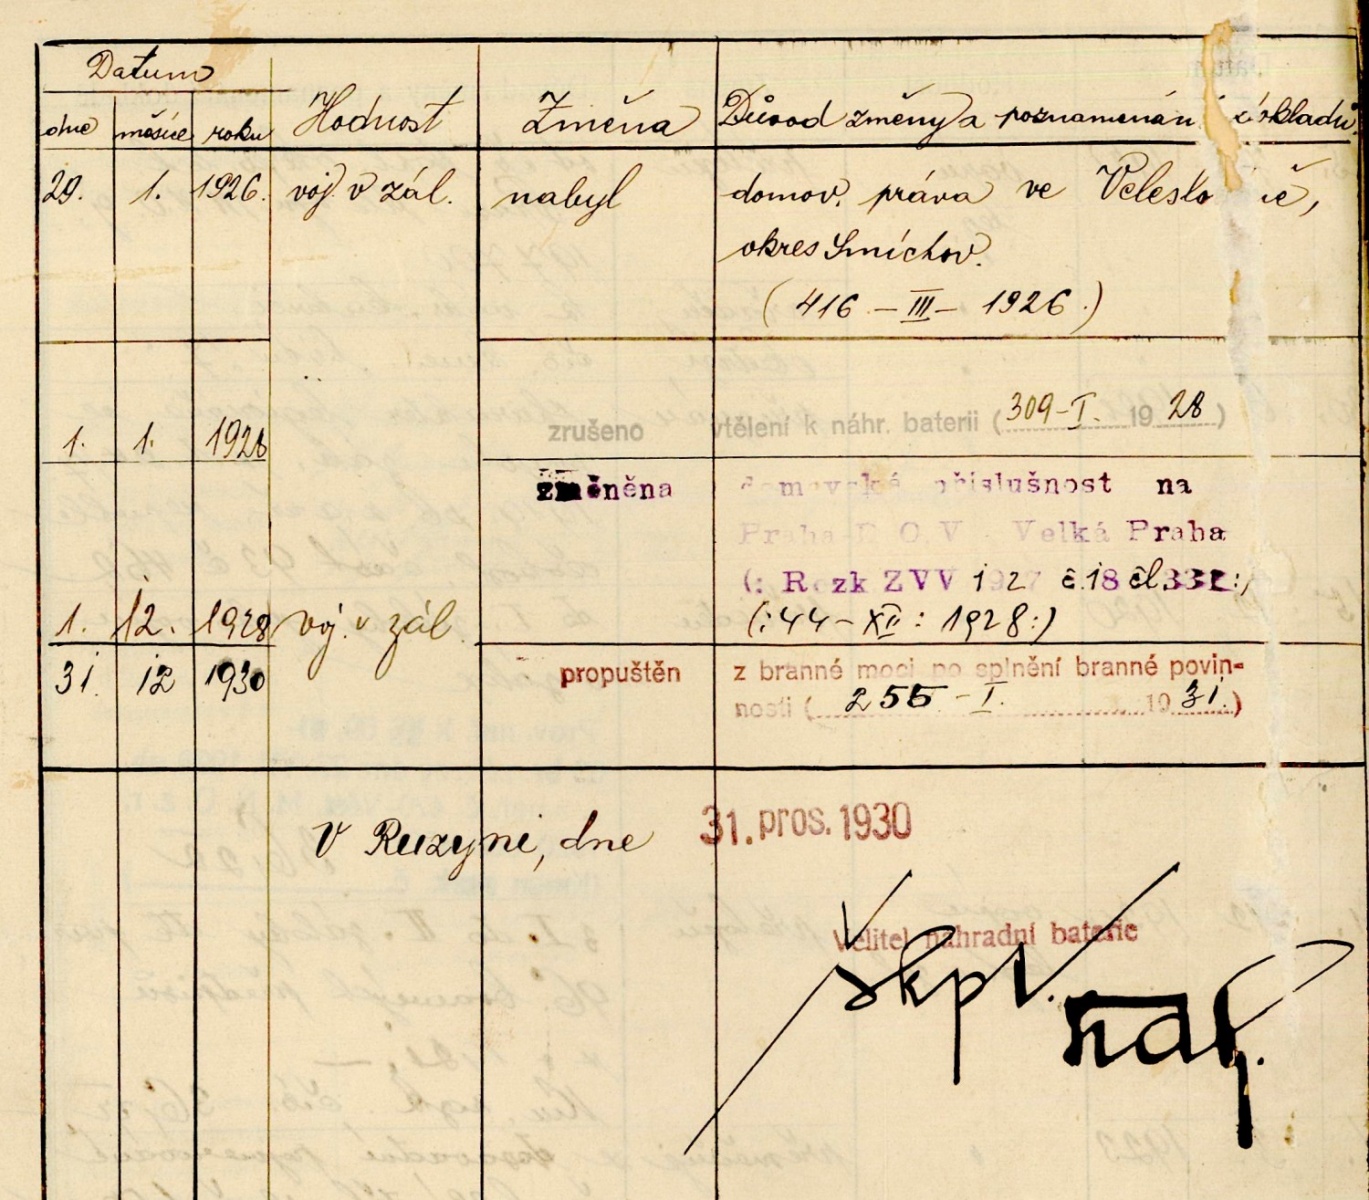 Datum
dne měsíce roku Hodnost Změna Důvod změny a poznamenání základů
29. 1. 1926. voj. v zál. nabyl domov. práva ve Velesla ně,
okres Smíchov.
(416 – III – 1926.)
1. 1. 1928 zrušeno vtělení k náhr. baterii (309-I. 1928)
změněna domovská příslušnost na
Praha Velká Praha
(: Rozk ZVV č.18 čl.
1. 12. 1928 voj. v zál. (:44-XII: 1928:)
31. 12 1930 propuštěn z branné moci po splnění branné povin-
nosti (255-I. 1931.)
V Ruzyni, dne 31. pros. 1930
Velitel náhradní baterie
škpt.